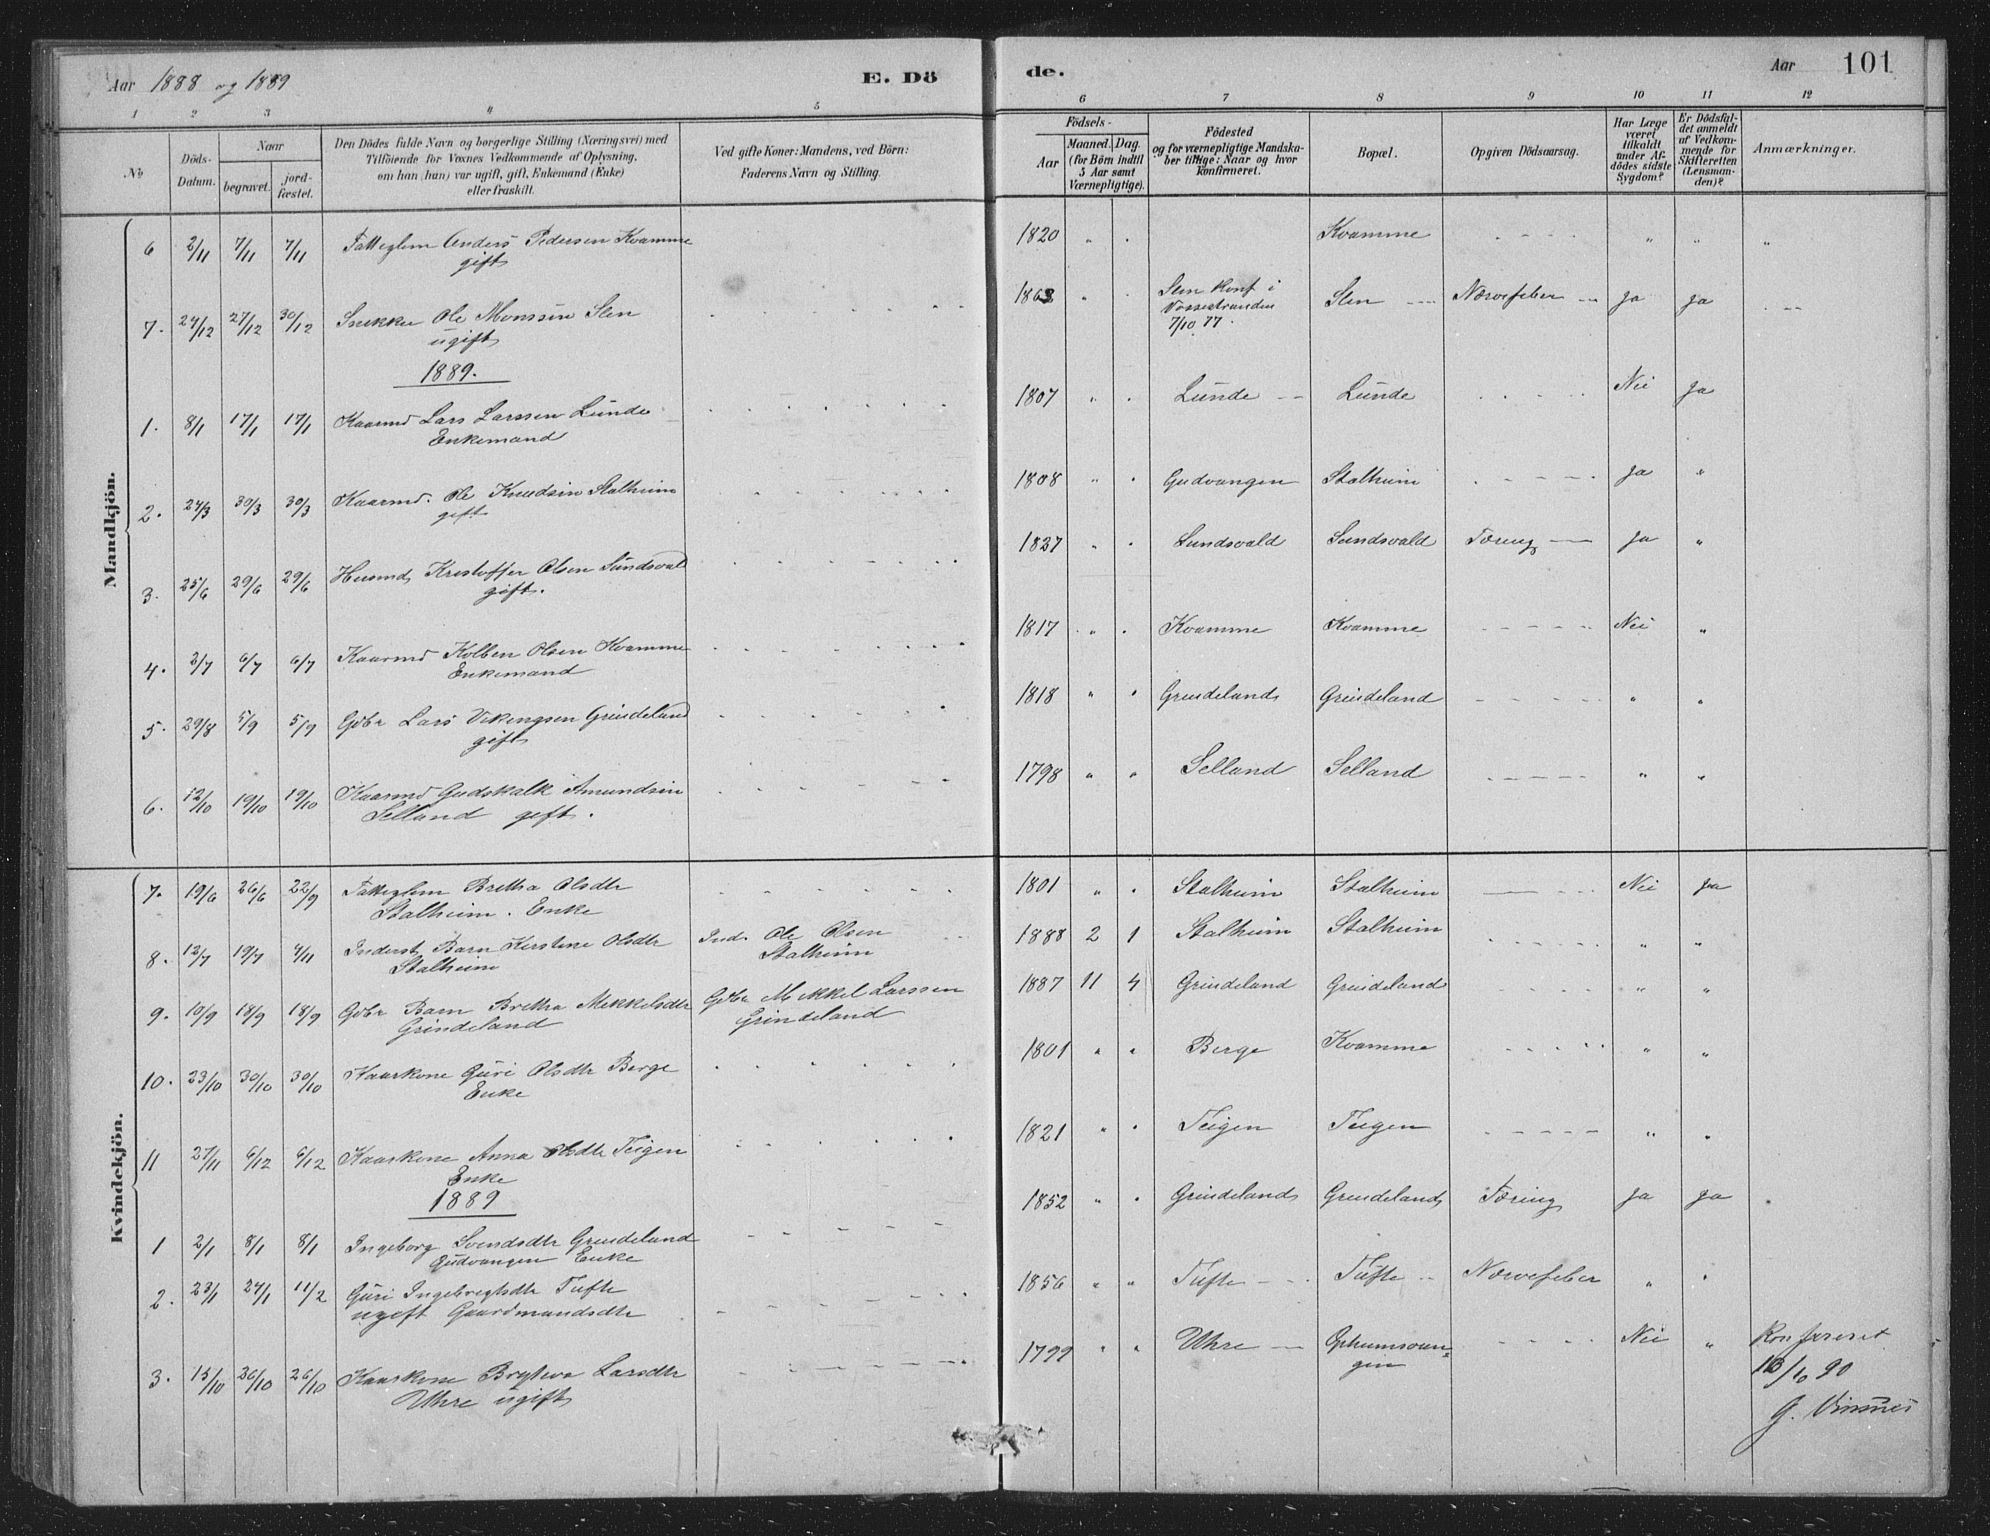 Aar 1888 og 1889 E. Dö de. Aar 101
1 2 3 4 5 6 7 8 9 10 11 12
No
Döds-Datum.
Naar
begravet.
jord-fæstet.
Den Dödes fulde Navn og borgerlige Stilling (Næringsvei) med
Tilföiende for Voxnes Vedkommende af Oplysning,
om han (hun) var ugift, gift, Enkemand (Enke)
eller fraskilt.
Ved gifte Koner: Mandens, ved Börn:
Faderens Navn og Stilling.
Födsels-
Aar
Maaned. Dag.
(for Börn indtil
5 Aar samt
Værnepligtige).
Födested
og for værnepligtige Mandska-
ber tillige: Naar og hvor
konfirmeret.
Bopæl.
Opgiven Dödsaarsag.
Har Læge
været
tilkaldt
under Af-
dödes sidste
Sygdom?
Er Dödsfal-
det anmeldt
af Vedkom-
mende for
Skifteretten
(Lensman-
den)?
Anmærkninger.
Mandkjön.
6 2/11 7/11 7/11 Fatteglem Anders Pedersen Kvamme 1820 " . Kvamme - - - - " " "
gift
7. 24/12 27/12 30/12 Snekker Ole Monssen Slen 1863 " . Slen konf i Slen Nervefeber ja ja
ugift Vossestranden
7/10 77.
1889.
1. 8/1 17/1 17/1 Kaarmd Lars Larssen Lunde 1807 " . Lunde Lunde - - - - Nei ja
Enkemand
2. 24/3 30/3 30/3 Kaarmd. Ole Knudsen Stalheim 1808 " . Gudvangen Stalheim - - - - ja "
gift
3. 25/6 29/6 29/6 Husmd Kristoffer Olsen Sundsvald 1827 " . Sundsvald Sundsvald Tæring ja "
gift.
4. 3/7 6/7 6/7 Kaarmd Kolben Olsen Kvamme 1817 " . Kvamme Kvamme - - - - Nei "
Enkemand
5. 29/8 5/9 5/9 Gdbr Lars Vikingsen Grindeland 1818 " . Grindeland Grindeland - - - - " "
gift
6. 12/10 19/10 19/10 Kaarmd Gudskalk Amundsen 1798 " " Selland Selland - - - - " "
Selland gift.
Kvindekjön.
7. 19/6 26/6 22/9 Fatteglem Brettha Olsdtr 1801 " . Stalheim Stalheim - - - Nei ja
Stalheim. Enke
8. 12/7 19/7 4/11 Inderst Barn Kerstine Olsdtr Ind. Ole Olsen 1888 2 1 Stalheim Stalheim - - - - " "
Stalheim Stalheim
9. 10/9 18/9 18/9 Gdbr Barn Brettha Mekkelsdtr Gdbr Mikkel Larssen 1887 11 4 Grindeland Grindeland - - - - " "
Grindeland Grindeland
10. 23/10 30/10 30/10 Kaarkone Guri Olsdtr Berge 1801 " " Berge Kvamme - - - - " "
Enke
11 27/11 6/12 6/12 Kaarkone Anna Olsdtr Teigen 1821 " . Teigen Teigen - - - - " "
Enke
1889
1 2/1 8/1 8/1 Ingeborg Svendsdtr Grindeland 1852 " . Grindeland Grindeland Tæring ja ja
Gudvangen Enke
2. 23/1 27/1 11/2 Guri Ingebregtsdtr Tufte 1856 " " Tufte Tufte Nervefeber " "
ugift Gaardmandsdtr
3. 15/10 26/10 26/10 Kaarkone Brytteva Larsdtr 1799 " " Uhre - - - - Nei " Konfereret
Uhre ugift 10/10 90
G. Vinsnes